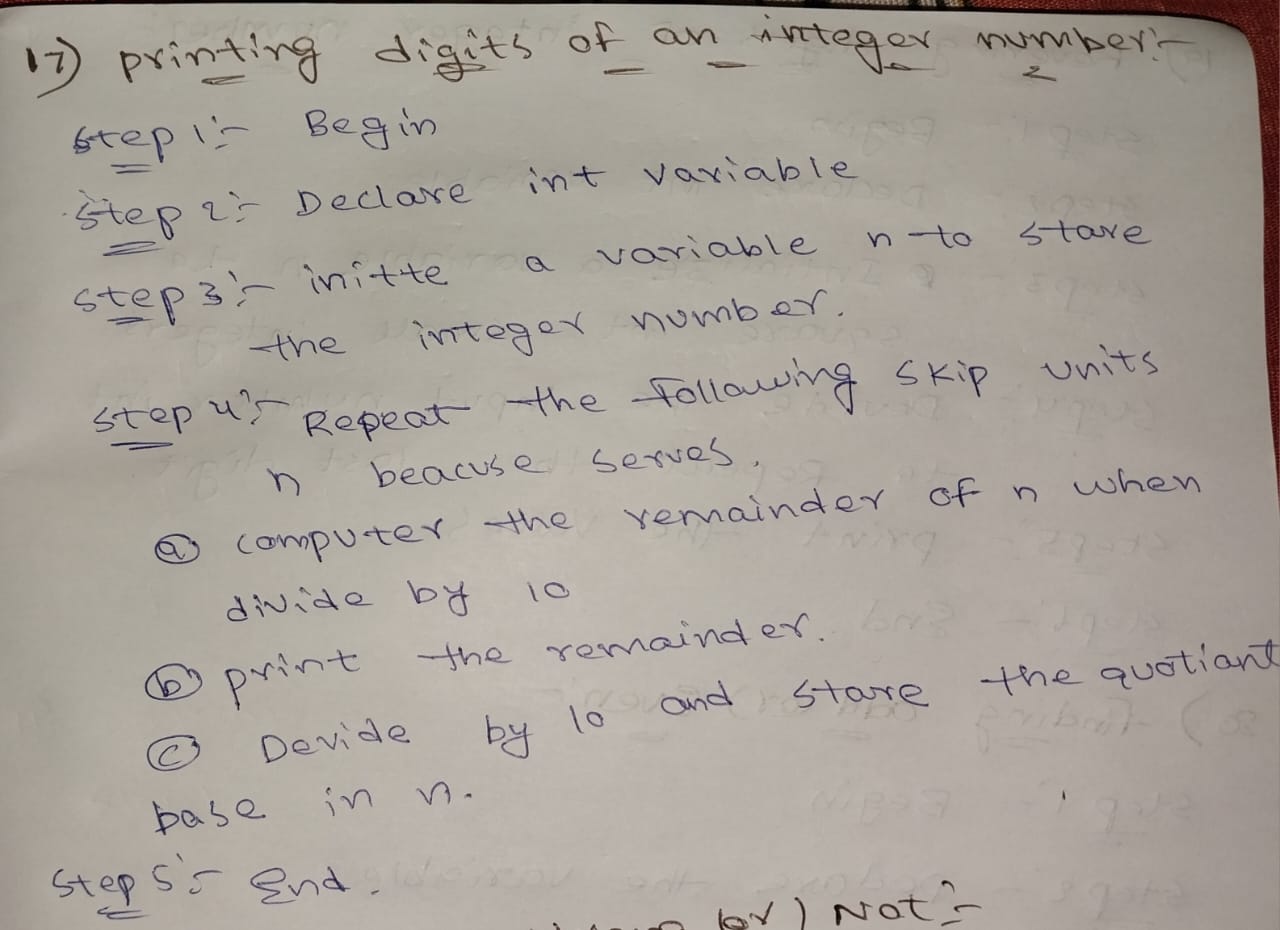 17) printing digits of an integer number:-
Step 1:- Begin
Step 2:- Declare int variable
Step 3:- initte a variable n to stare
the integer number.
Step 4:- Repeat the following skip units
n beacuse serves.
(a) computer the remainder of n when
divide by 10
(b) print the remainder.
(c) Devide by 10 and stare the quotiant
base in n.
Step 5:- End.
(or) Not:-